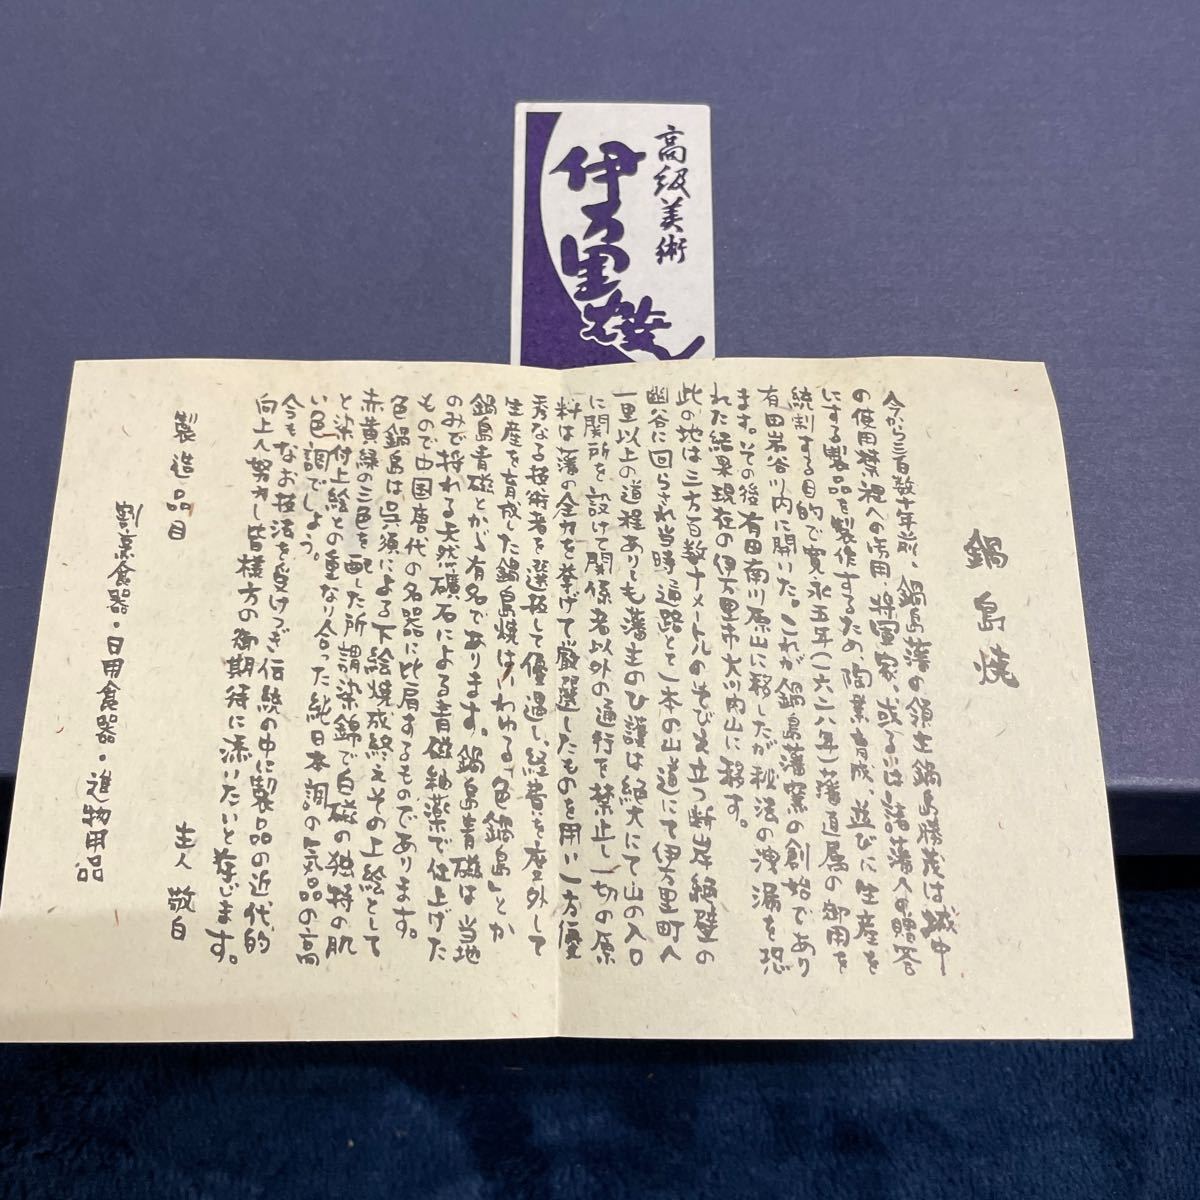 高級美術
伊万里焼
鍋島焼
今から三百数十年前、鍋島藩の領主鍋島勝茂は城中
の使用禁裡への御用、将軍家、或るいは諸藩への贈答
にする製品を製作するため、陶業育成、並びに生産を
統割する目的で寛永五年(一六二八年)藩直属の御用を
有田岩谷川内に開いた。これが鍋島藩窯の創始であり
ます。その後有田南川原山に移したが秘法の洩漏を恐
れた結果現在の伊万里市大川内山に移す。
此の地は三方百数十メートルのそびえ立つ断岸絶壁の
幽谷に回らされ当時通路とて一本の山道にて伊万里町へ
一里以上の道程ありても藩主のひ護は絶大にて山の入口
に関所を設けて関係者以外の通行を禁止し一切の原
料は藩の全力を挙げて厳選したものを用い一方優
秀なる技術者を選抜して優遇し、経費を度外して
生産を育成した鍋島焼はいわゆる「色鍋島」とか
鍋島青磁とかゝ有名であります。鍋島青磁は当地
のみで採れる天然礦石による青磁釉薬で仕上げた
もので中国唐代の名器に比肩するものであります。
色鍋島は呉須による下絵焼成終えその上絵として
赤黄緑の三色を配した所謂染錦で白磁の独特の肌
と染付上絵との重なり合った純日本調の気品の高
い色調でしょう。
今もなお技法を受けつぎ伝統の中に製品の近代的
向上へ努力し皆様方の御期待に添いたいと存じます。
主人 敬白
製造品目
割烹食器・日用食器・進物用品